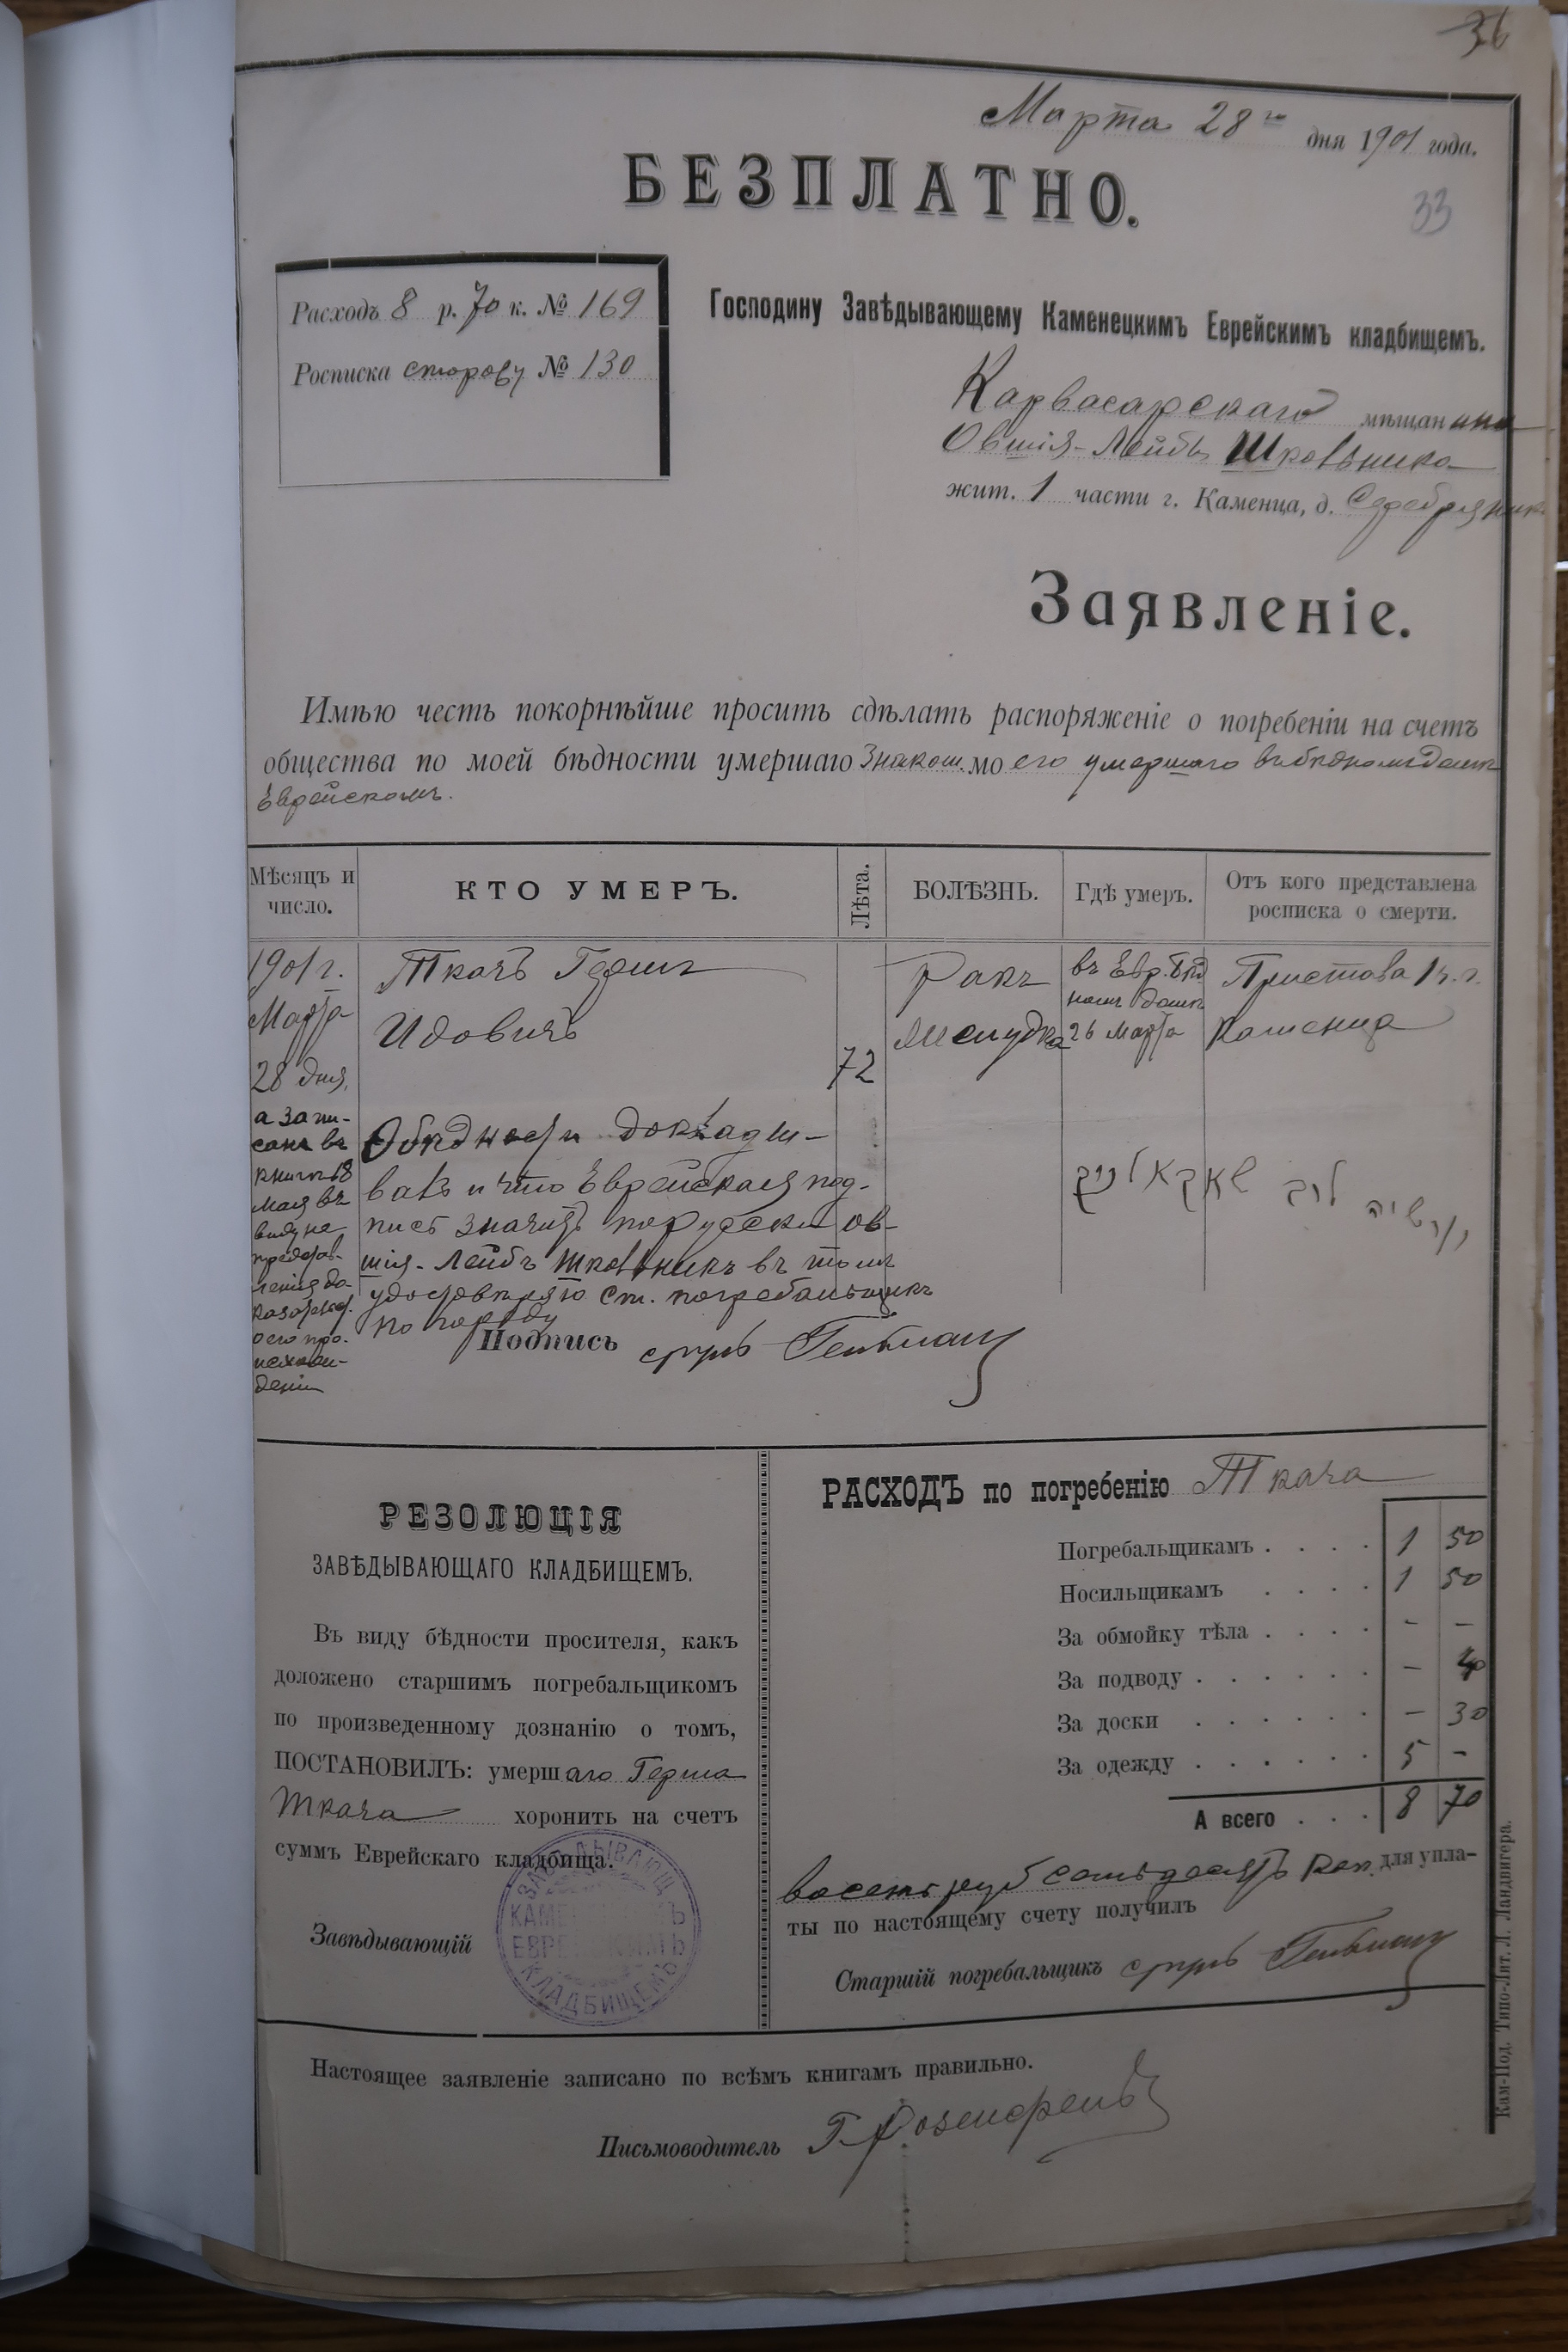 36
Марта 28го дня 1901 года.
БЕЗПЛАТНО.
33
Расходъ 8 р. 70 к. № 169
Росписка № 130
Господину Завѣдывающему Каменецкимъ Еврейскимъ кладбищемъ.
Карвасарскаго мѣщанина
Овшія-Лейбы Школьника
жит. 1 части г. Каменца, д. Серебряник
Заявленіе.
Имѣю честь покорнѣйше просить сдѣлать распоряженіе о погребеніи на счетъ
общества по моей бѣдности умершаго знаком. моего умершаго въ бѣдномъ домѣ
Еврейскомъ.
Мѣсяцъ и число.
КТО УМЕРЪ.
Лѣта.
БОЛѢЗНЬ.
Гдѣ умеръ.
Отъ кого представлена росписка о смерти.
1901 г.
Марта
28 дня,
а запи-
санъ въ
книги 18
мая въ
виду не
представ-
ленія до-
казател.
о его про-
исхож-
деніи
Ткачъ Герш
Идовичъ
72
Ракъ
желудка
въ Евр. бѣд
номъ домѣ
26 Марта
Пристава 1 ч. г.
Каменца
О бѣдности доклады-
валъ и что Еврейская под-
пись значитъ порусски Ов-
шія-Лейбъ Школьникъ въ томъ
удостовѣряю ст. погребальщикъ
по городу
אוושיה לייב שקאלניק
Подпись сруль Гельман
РЕЗОЛЮЦІЯ
ЗАВѢДЫВАЮЩАГО КЛАДБИЩЕМЪ.
Въ виду бѣдности просителя, какъ
доложено старшимъ погребальщикомъ
по произведенному дознанію о томъ,
ПОСТАНОВИЛЪ: умершаго Герша
Ткача хоронить на счетъ
суммъ Еврейскаго кладбища.
Завѣдывающій
ЗАВѢДЫВАЮЩ
КАМЕНЕЦКИМЪ
ЕВРЕЙСКИМЪ
КЛАДБИЩЕМЪ
РАСХОДЪ по погребенію Ткача
Погребальщикамъ . . . . 1 50
Носильщикамъ . . . . 1 50
За обмойку тѣла . . . . - -
За подводу . . . . . . - 40
За доски . . . . . . - 30
За одежду . . . . . . 5 -
А всего . . . 8 70
восемь руб семьдесятъ коп. для упла-
ты по настоящему счету получилъ
Старшій погребальщикъ сруль Гельман
Настоящее заявленіе записано по всѣмъ книгамъ правильно.
Письмоводитель Г. Розенфельд
Кам-Под. Типо-Лит. Л. Ландвигера.